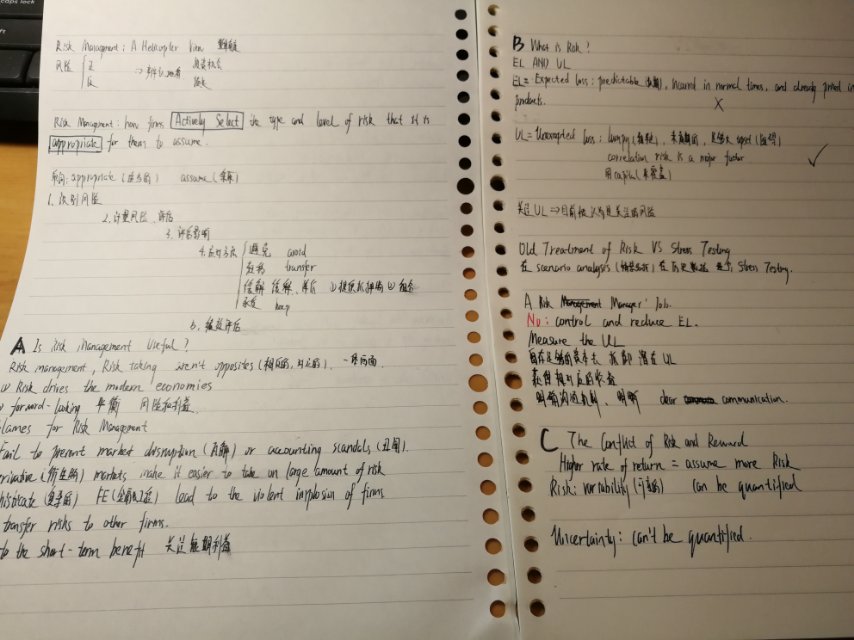 caps lock
Risk Managment: A Helicopter View
风险 正
负
Risk Management: how firms Actively Select the type and level of risk that it is
appropriate for them to assume.
appropriate (适当的) assume (承担)
1. 识别风险
2. 计量风险
3. 评估影响
4. 应对方式 避免 avoid
转移 transfer
缓解
承受 keep
5. 绩效评估
A Is Risk Management Useful?
Risk management, Risk taking aren't opposites (相反的, 对立的).
Risk drives the modern economies
forward-looking 平衡 风险和利益
lames for Risk Managment
Fail to prevent market disruption or accounting scandals (丑闻).
erivative (衍生的) markets make it easier to take on large amount of risk
histicate (复杂的) FE (金融工程) lead to the violent implosion of firms
transfer risks to other firms.
to the short-term benefit 关注短期利益
B What is Risk?
EL AND UL
EL = Expected loss: predictable, incurred in normal times, and already priced in
products.
X
UL = Unexpected loss: lumpy
correlation risk is a major factor
用 capital
关注 UL ⇒ 目前被认为是关注的风险
Old Treatment of Risk VS Stress Testing
在 scenario analysis (情景分析) 在历史数据 Stress Testing.
A Risk Manager' Job.
No: control and reduce EL.
Measure the UL
UL
获得相对应的收益
clear communication.
C The Conflict of Risk and Reward
Higher rate of return = assume more Risk
Risk: variability (可变的) can be quantified
Uncertainty: can't be quantified.